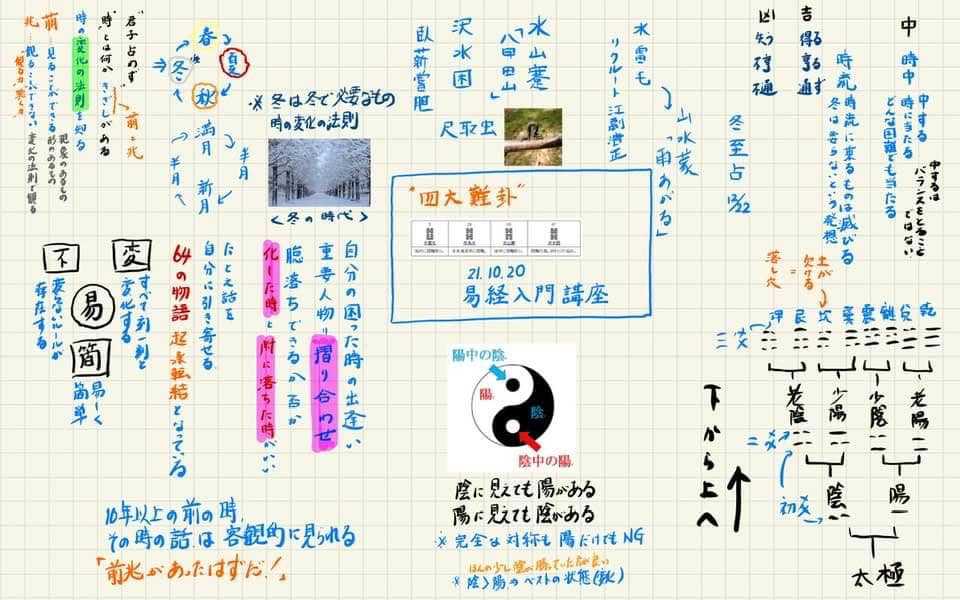 中
時中
中する
時に当たる
どんな困難でも当たる
中するは
バランスをとること
ではない
吉 得る 亨る 通ず
凶
時流
時流に乗るものは滅びる
冬は要らないという発想
冬至占 12/22
水雷屯
リクルート 江副浩正
山水蒙
「雨あがる」
水山蹇
「八甲田山」
沢水困
尺取虫
臥薪嘗胆
"四大難卦"
21.10.20
易経入門講座
陽中の陰.
陽.
陰.
陰中の陽.
陰に見えても陽がある
陽に見えても陰がある
※ 完全な対称も陽だけでもNG
ほんの少し陰が勝っていた方が良い
※ 陰>陽のベストの状態
土が
欠ける
=
落し穴
坤 艮 坎 巽 震 離 兌 乾
三爻
老陰 少陽 少陰 老陽
二爻
陰 陽
初爻
太極
下から上へ
春
夏
秋
冬
満月
半月
新月
半月
※ 冬は冬で必要なもの
時の変化の法則
<冬の時代>
自分の困った時の出逢い
重要人物
摺り合わせ
腑落ちできるか否か
化した時と腑に落ちた時がいい
たとえ話を
自分に引き寄せる
64の物語 起承転結となっている
"君子占のず"
"時"とは何か
きざしがある
前=兆
時の変化の法則を知る
前…見ることができる
兆…観ることができない
現象のあるもの
形のあるもの
変化の法則で観る
変
すべて刻一刻と
変化する
易
不
変らないルールが
存在する
簡
易しく
簡単
10年以上の前の時、
その時の話は客観的に見られる
「前兆があったはずだ!」